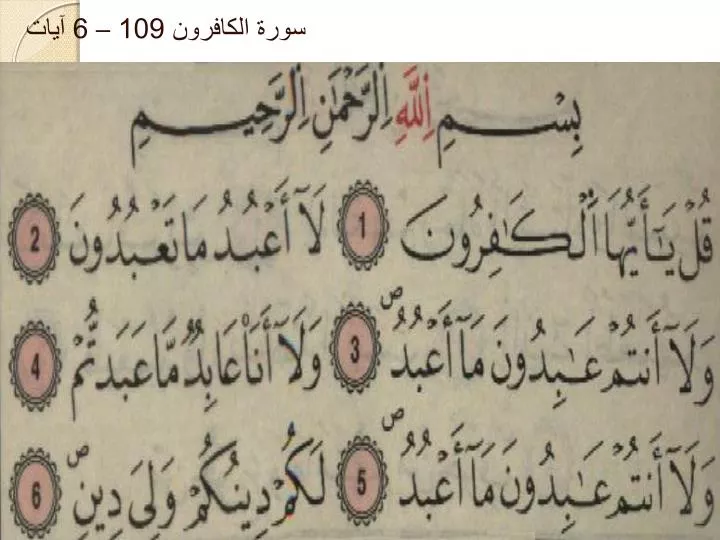 سورة الكافرون 109 – 6 آيات
بِسْمِ اِللَّهِ اِلرَّحْمَٰنِ اِلرَّحِيمِ
قُلْ يَٰٓأَيُّهَا اَ۬لْكَٰفِرُونَ 1 لَآ أَعْبُدُ مَا تَعْبُدُونَ 2
وَلَآ أَنتُمْ عَٰبِدُونَ مَآ أَعْبُدُ ص 3 وَلَآ أَنَا۠ عَابِدٌ مَّا عَبَدتُّمْ 4
وَلَآ أَنتُمْ عَٰبِدُونَ مَآ أَعْبُدُ ص 5 لَكُمْ دِينُكُمْ وَلِىَ دِينِ ص 6